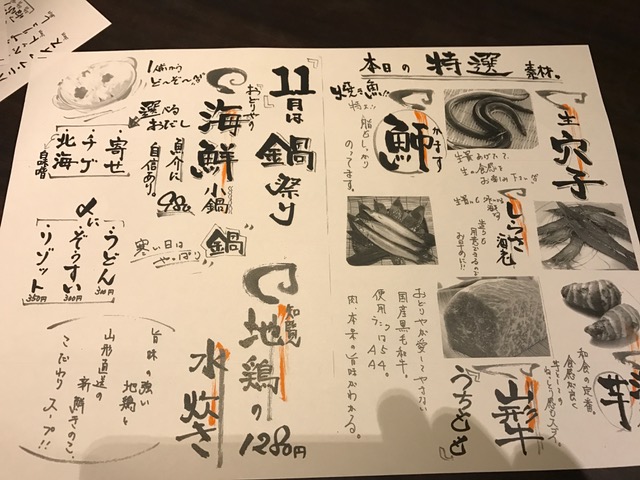 本日の特選素材。
生穴子
生簀あげたて、
生の食感を
お楽しみ下さい!!
しらさ海老
焼き魚!!
特大!!
かます
脂しっかり
のってます。
芋
和食の定番。
食感が良く
山形牛
『うちもも』
おとりやが愛してやまない
国産黒毛和牛。
使用ランクは5A、
4A
肉本来の旨味がわかる。
『11月は鍋祭り』
おとりやの
海鮮小鍋
魚介に
自信あり。
980
1人前から
ど〜ぞ〜!!
選べる
おだし
寄せ
チゲ
北海
白味噌
〆に
うどん 300円
ぞうすい 300円
リゾット 350円
寒い日は
やっぱり
"鍋"
地鶏の
水炊き
1280円
旨味の強い
地鶏と
山形直送の
新鮮きのこ。
こだわりスープ!!